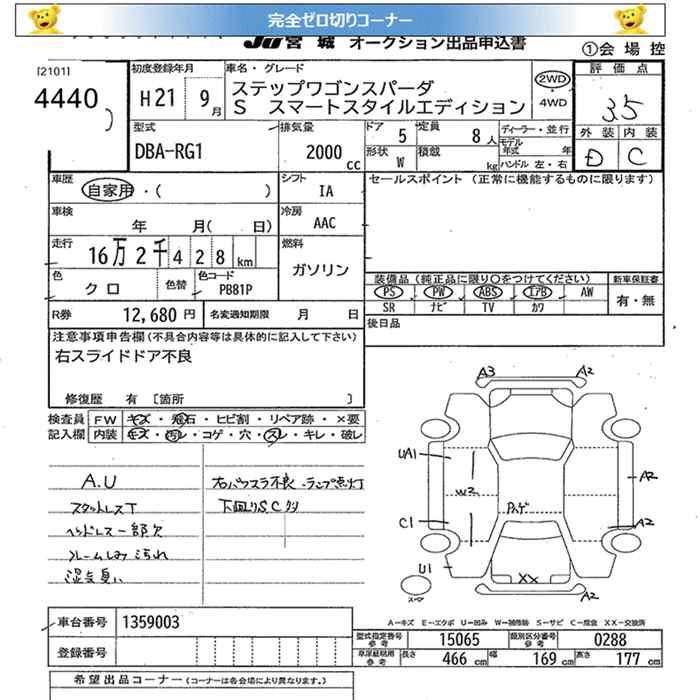 完全ゼロ切りコーナー
JU宮城 オークション出品申込書
①会場控
[2101]
4440
初度登録年月
H21 9月
車名・グレード
ステップワゴンスパーダ
S スマートスタイルエディション
2WD
・4WD
評価点
3.5
外装 内装
D C
型式
DBA-RG1
排気量
2000cc
ドア 5
定員 8人
ディーラー・並行
形状 W
積載 kg
モデル年式 年
ハンドル 左・右
車歴
自家用・( )
シフト
IA
セールスポイント (正常に機能するものに限ります)
車検
年 月( 日)
冷房
AAC
走行
16万2千428km
燃料
ガソリン
色
クロ
色替
色コード
PB81P
装備品 (純正品に限り○をつけてください)
新車保証書
PS PW ABS エアB AW
SR ナビ TV カワ
有・無
R券 12,680円
名変通知期限 月 日
後日品
注意事項申告欄 (不具合内容等は具体的に記入して下さい)
右スライドドア不良
修復歴 有 [箇所 ]
検査員 FW キズ・飛石・ヒビ割・リペア跡・×要
記入欄 内装 キズ・汚レ・コゲ・穴・スレ・キレ・破レ
A.U
スタットレスT
ヘッドレス一部欠
フレームしみ汚れ
湿気臭い
右パワスラ不良 ランプ点灯
下回りS.Cクリ
A3 A2
UA1
W2
A2
C1
A2
U1
XX
A2
A＝キズ E＝エクボ U＝凹み W＝補修跡 S＝サビ C＝腐食 XX＝交換済
車台番号 1359003
登録番号
型式指定番号 参考 15065
類別区分番号 参考 0288
参考
長さ 466cm
幅 169cm
高さ 177cm
希望出品コーナー (コーナーは各会場により異なります。)